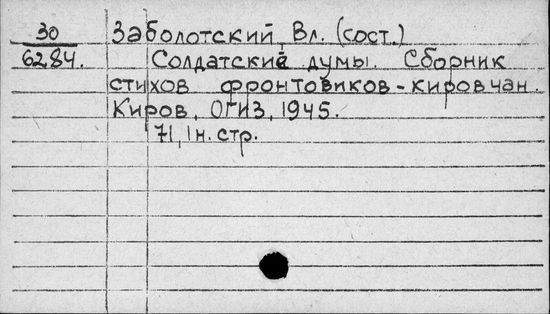 30 Заболотский, Вл. (сост.)
6284. Солдатские думы. Сборник
стихов фронтовиков-кировчан.
Киров, ОГИЗ, 1945.
71, 1н. стр.